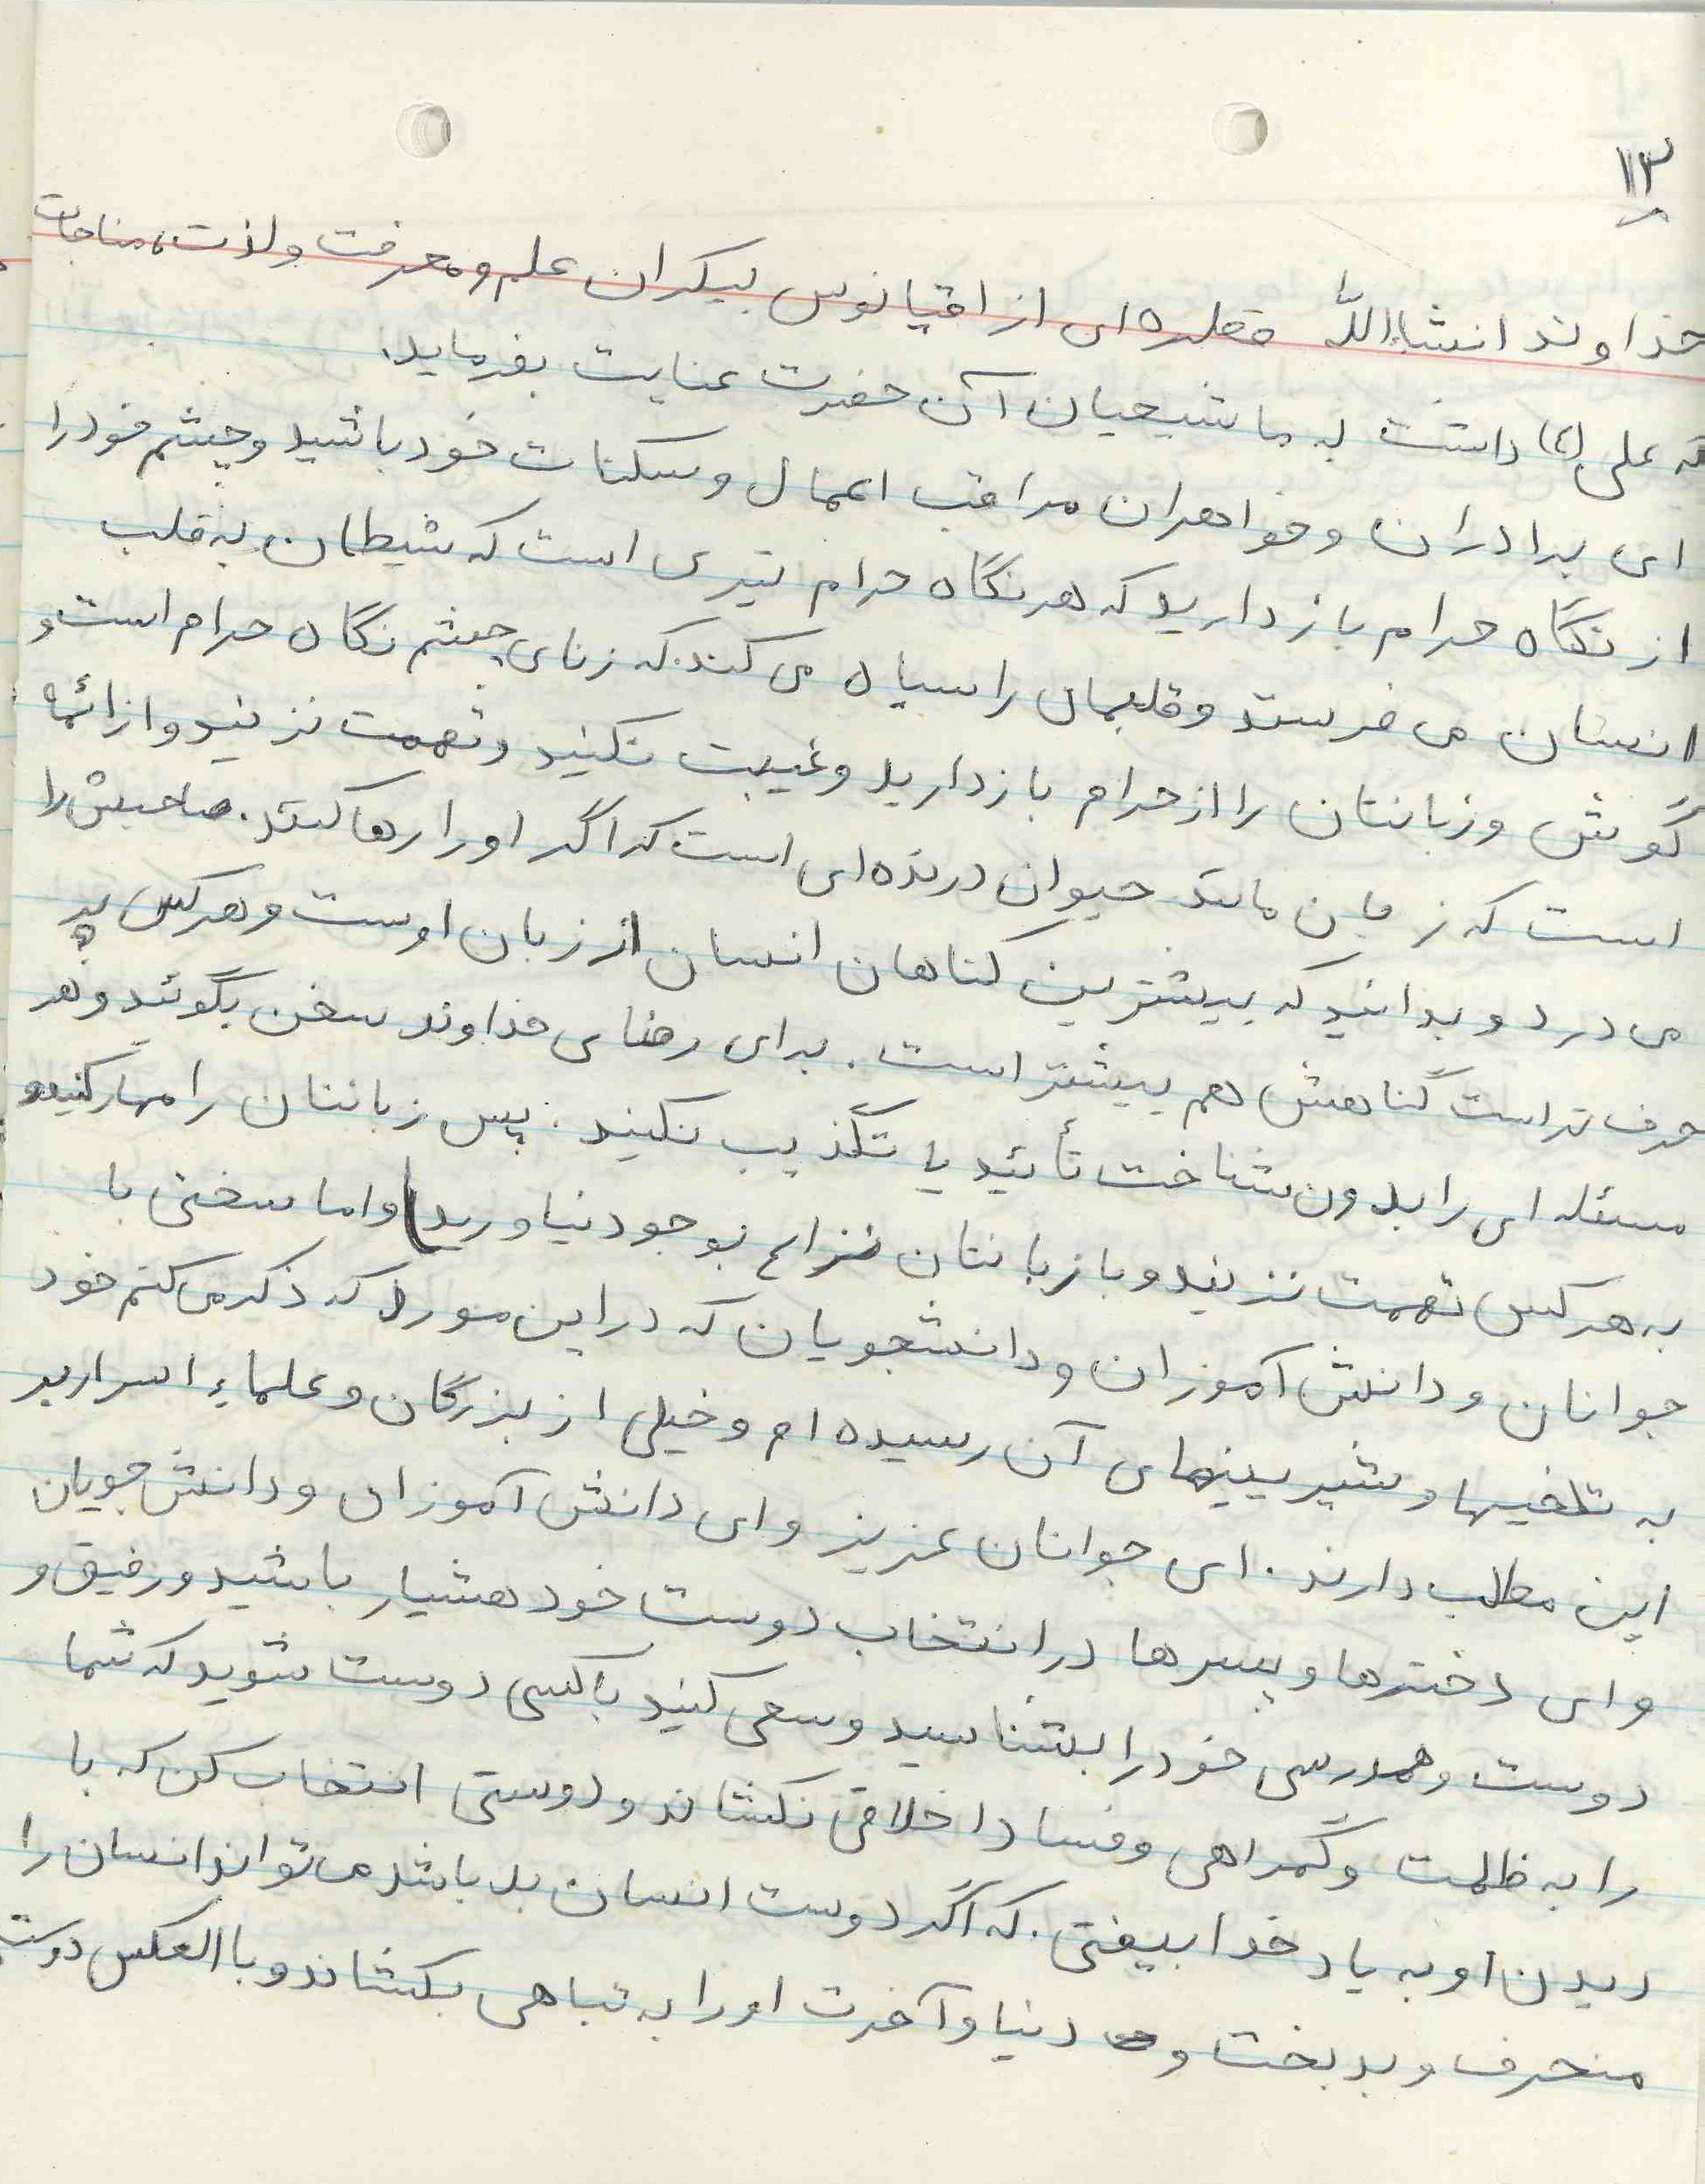 ۱۳
خداوند انشاءالله قطره ای از اقیانوس بیکران علم و معرفت و لذت، مناجات
که علی (ع) داشت به ما شیعیان آن حضرت عنایت بفرماید.
ای برادران و خواهران مراقب اعمال و سکنات خود باشید و چشم خود را
از نگاه حرام باز دارید که هر نگاه حرام تیری است که شیطان به قلب
انسان می فرستد و قلبمان را سیاه می کند. که زنای چشم نگاه حرام است و
گوش و زبانتان را از حرام باز دارید و غیبت نکنید و تهمت نزنید و از ائمه
است که زبان مانند حیوان درنده ای است که اگر او را رها کنند. صاحبش را
می درد و بدانید که بیشترین گناهان انسان از زبان اوست و هر کس پر
حرف تر است گناهش هم بیشتر است. برای رضای خداوند سخن بگوئید و هر
مسئله ای را بدون شناخت تأئید یا تکذیب نکنید. پس زبانتان را مهار کنید و
به هر کس تهمت نزنید و با زبانتان نزاع بوجود نیاورید) و اما سخنی با
جوانان و دانش آموزان و دانشجویان که در این مورد که ذکر می کنم خود
به تلخیها و شیرینیهای آن رسیده ام و خیلی از بزرگان و علماء اسرار بر
این مطلب دارند. ای جوانان عزیز و ای دانش آموزان و دانش جویان
و ای دخترها و پسرها در انتخاب دوست خود هشیار باشید و رفیق و
دوست و همدرسی خود را بشناسید و سعی کنید با کسی دوست شوید که شما
را به ظلمت و گمراهی و فساد اخلاقی نکشاند و دوستی انتخاب کن که با
دیدن او به یاد خدا بیفتی. که اگر دوست انسان بد باشد می تواند انسان را
منحرف و بدبخت و دنیا و آخرت او را به تباهی بکشاند و با العکس دوست